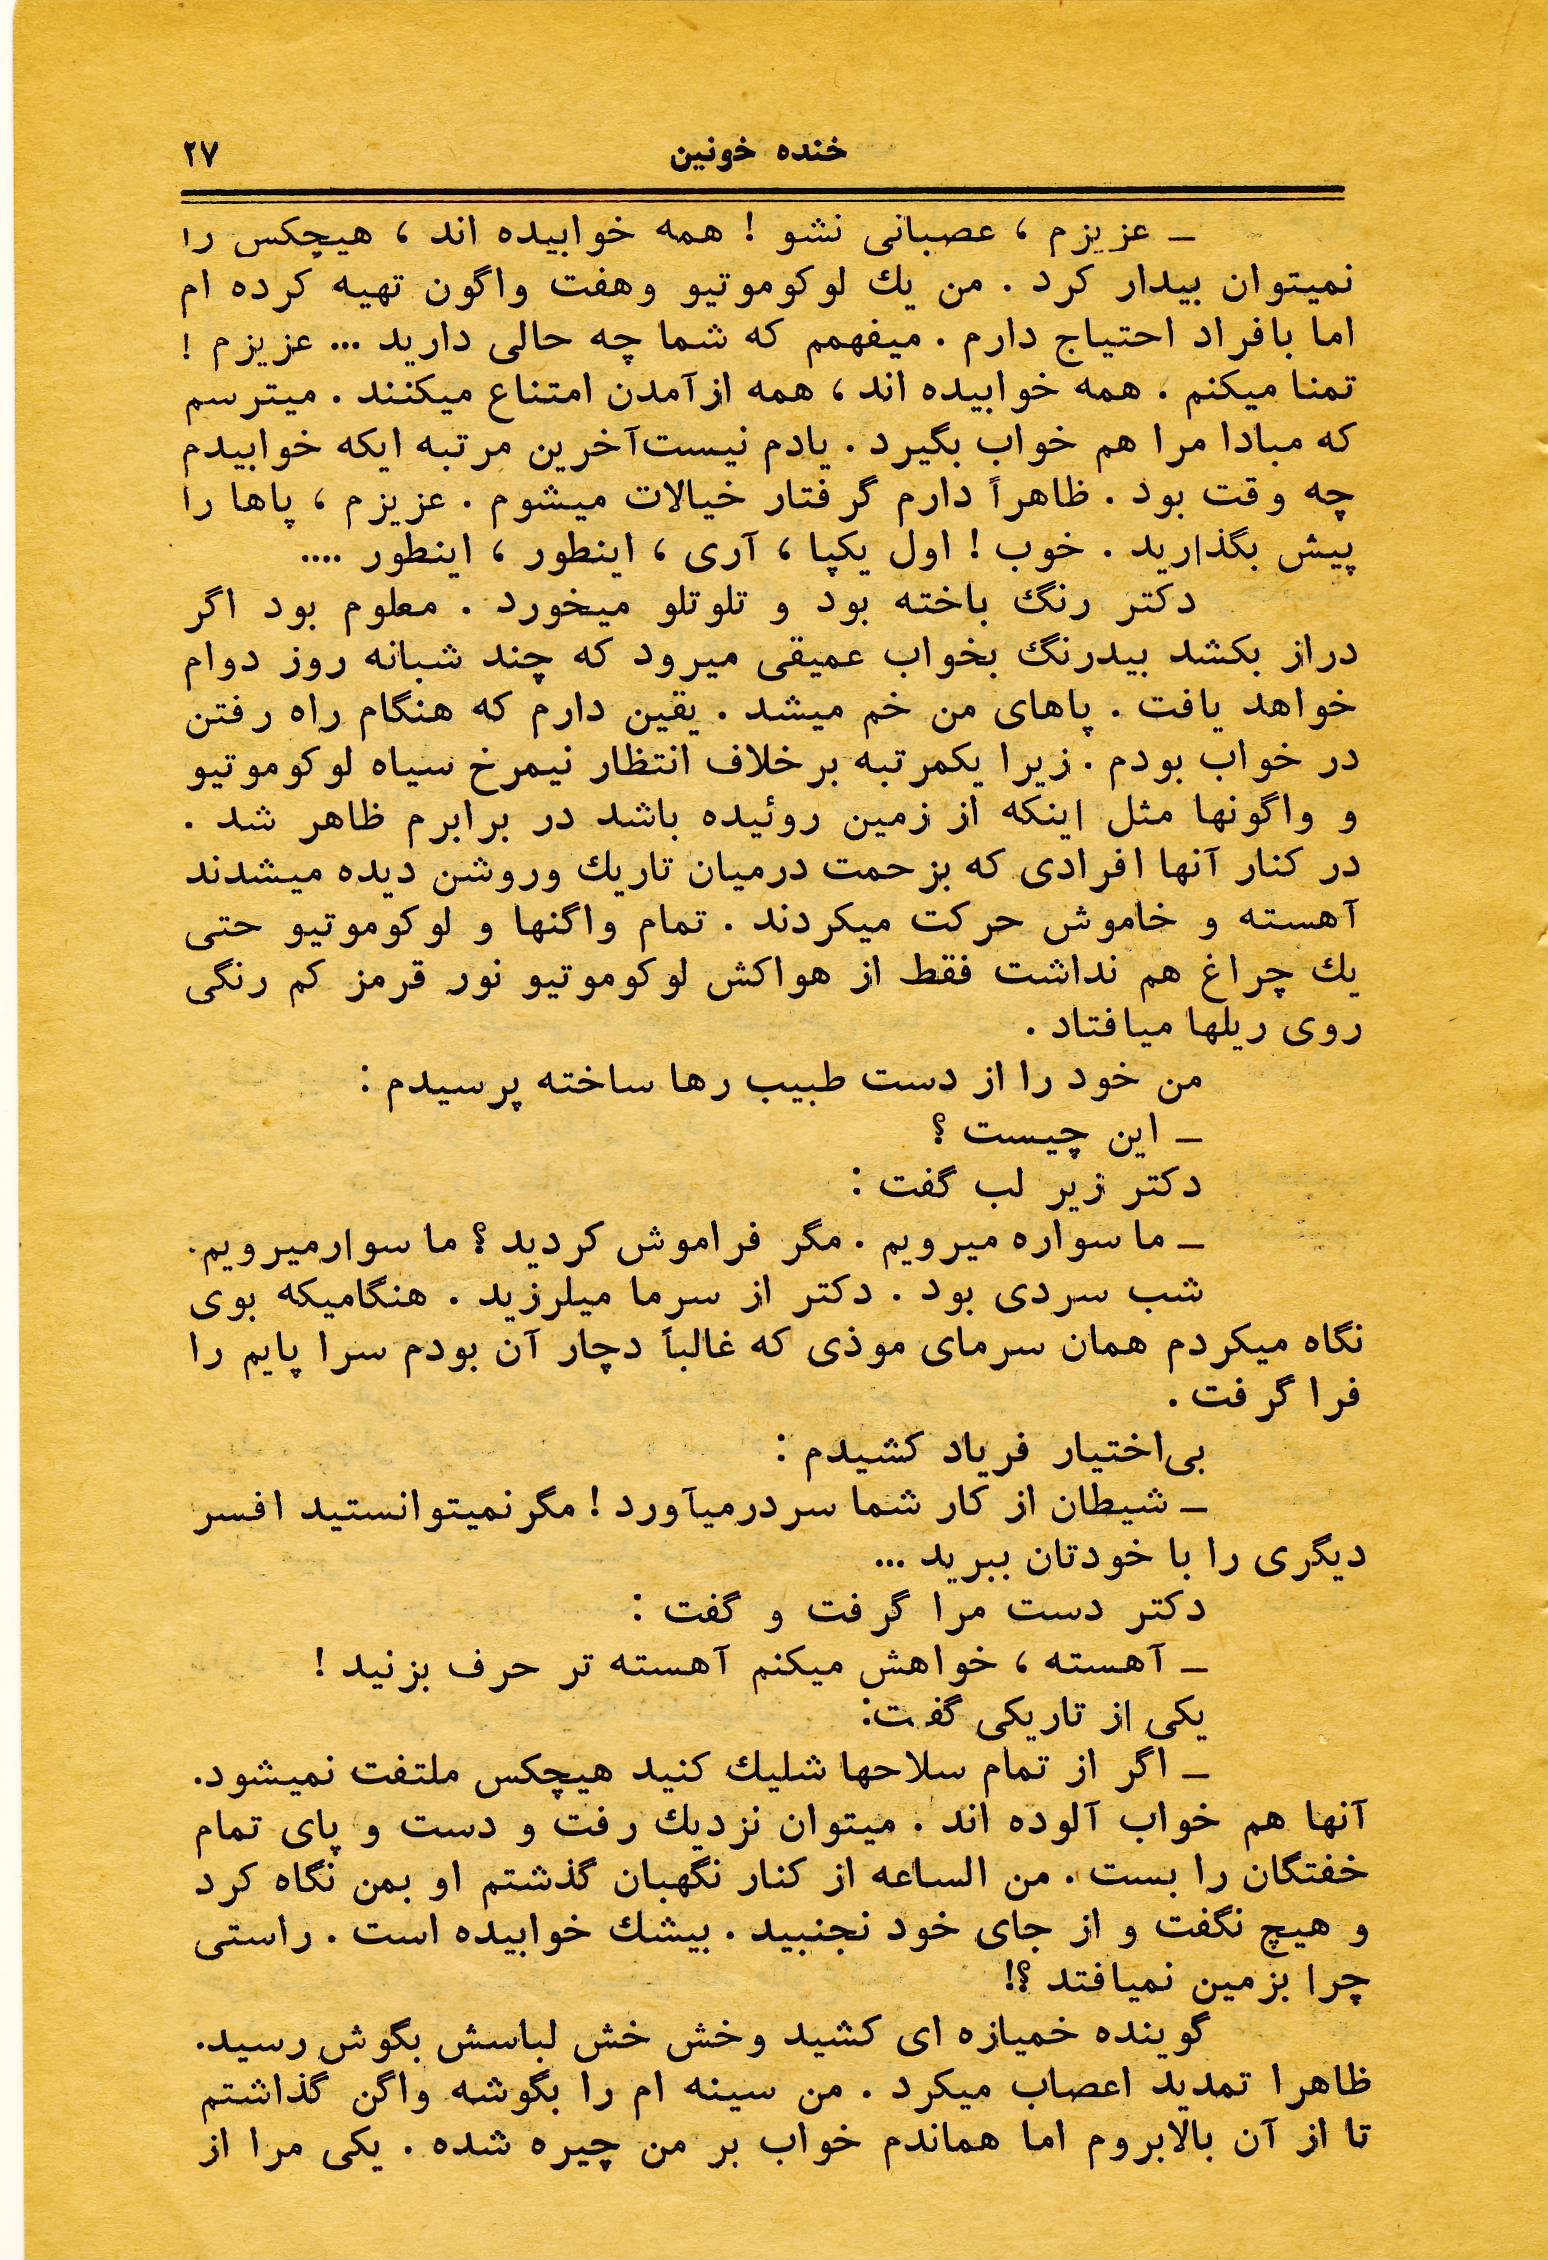 خنده خونین ۲۷
ـ عزیزم ، عصبانی نشو ! همه خوابیده اند ، هیچکس را
نمیتوان بیدار کرد . من یك لوکوموتیو وهفت واگون تهیه کرده ام
اما بافراد احتیاج دارم . میفهمم که شما چه حالی دارید ... عزیزم !
تمنا میکنم . همه خوابیده اند ، همه ازآمدن امتناع میکنند . میترسم
که مبادا مرا هم خواب بگیرد . یادم نیست‌آخرین مرتبه ایکه خوابیدم
چه وقت بود . ظاهراً دارم گرفتار خیالات میشوم . عزیزم ، پاها را
پیش بگذارید . خوب ! اول یکپا ، آری ، اینطور ، اینطور ....
دکتر رنگ باخته بود و تلوتلو میخورد . معلوم بود اگر
دراز بکشد بیدرنگ بخواب عمیقی میرود که چند شبانه روز دوام
خواهد یافت . پاهای من خم میشد . یقین دارم که هنگام راه رفتن
در خواب بودم . زیرا یکمرتبه برخلاف انتظار نیمرخ سیاه لوکوموتیو
و واگونها مثل اینکه از زمین روئیده باشد در برابرم ظاهر شد .
در کنار آنها افرادی که بزحمت درمیان تاریك وروشن دیده میشدند
آهسته و خاموش حرکت میکردند . تمام واگنها و لوکوموتیو حتی
یك چراغ هم نداشت فقط از هواکش لوکوموتیو نور قرمز کم رنگی
روی ریلها میافتاد .
من خود را از دست طبیب رها ساخته پرسیدم :
ـ این چیست ؟
دکتر زیر لب گفت :
ـ ما سواره میرویم . مگر فراموش کردید ؟ ما سوارمیرویم.
شب سردی بود . دکتر از سرما میلرزید . هنگامیکه بوی
نگاه میکردم همان سرمای موذی که غالباً دچار آن بودم سرا پایم را
فرا گرفت .
بی‌اختیار فریاد کشیدم :
ـ شیطان از کار شما سردرمیآورد ! مگرنمیتوانستید افسر
دیگری را با خودتان ببرید ...
دکتر دست مرا گرفت و گفت :
ـ آهسته ، خواهش میکنم آهسته تر حرف بزنید !
یکی از تاریکی گفت:
ـ اگر از تمام سلاحها شلیك کنید هیچکس ملتفت نمیشود.
آنها هم خواب آلوده اند . میتوان نزدیك رفت و دست و پای تمام
خفتگان را بست . من الساعه از کنار نگهبان گذشتم او بمن نگاه کرد
و هیچ نگفت و از جای خود نجنبید . بیشك خوابیده است . راستی
چرا بزمین نمیافتد ؟!
گوینده خمیازه ای کشید وخش خش لباسش بگوش رسید.
ظاهرا تمدید اعصاب میکرد . من سینه ام را بگوشه واگن گذاشتم
تا از آن بالابروم اما هماندم خواب بر من چیره شده . یکی مرا از